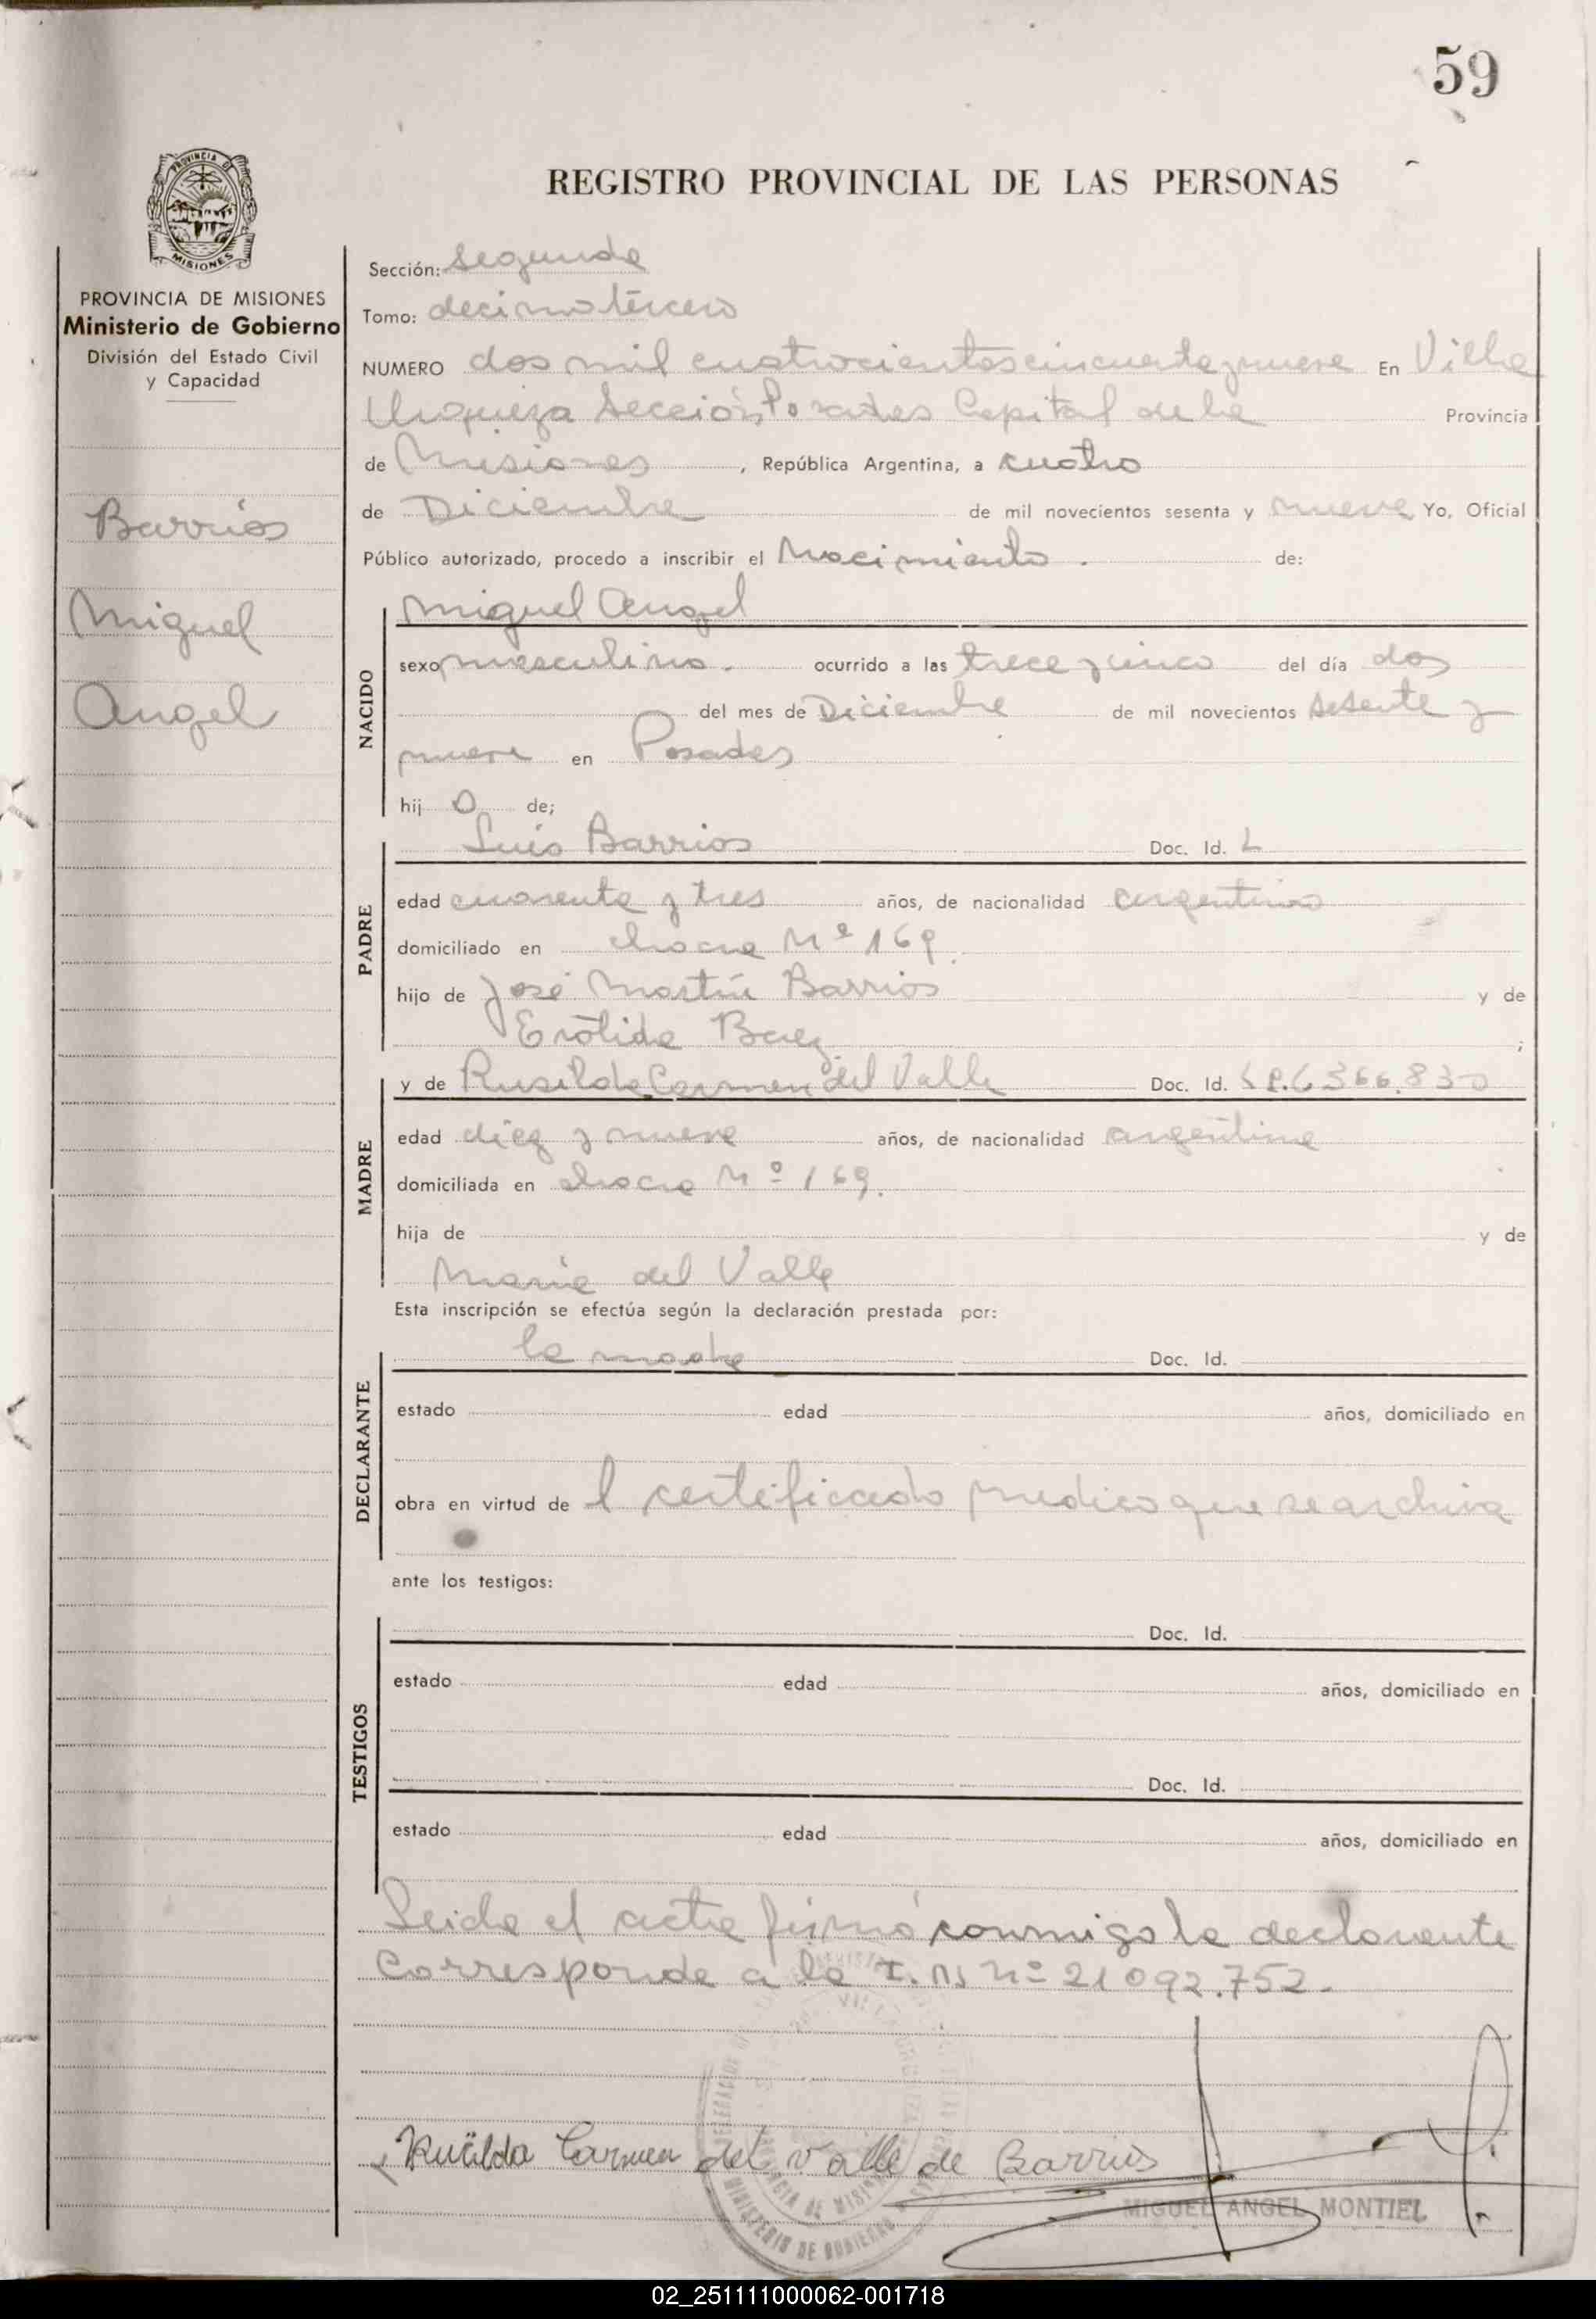 59
REGISTRO PROVINCIAL DE LAS PERSONAS
PROVINCIA DE MISIONES
PROVINCIA DE MISIONES
Ministerio de Gobierno
División del Estado Civil
y Capacidad
Barrios
Miguel
Angel
Sección: Segunda
Tomo: decimotercero
NUMERO dos mil cuatrocientos cincuenta y nueve En Villa
Urquiza Sección Posadas Capital de la Provincia
de Misiones, República Argentina, a cuatro
de Diciembre de mil novecientos sesenta y nueve Yo, Oficial
Público autorizado, procedo a inscribir el Nacimiento. de:
NACIDO
Miguel Angel
sexo masculino. ocurrido a las trece y cinco del día dos
del mes de Diciembre de mil novecientos sesenta y
nueve en Posadas
hij o de;
PADRE
Luis Barrios Doc. Id. L
edad cuarenta y tres años, de nacionalidad argentino
domiciliado en chacra Nº 169.
hijo de José Martín Barrios y de
Erótida Baez ;
MADRE
y de Rusilda Carmen del Valle Doc. Id. 6366.830
edad diez y nueve años, de nacionalidad argentina
domiciliada en chacra Nº 169.
hija de y de
Maria del Valle
Esta inscripción se efectúa según la declaración prestada por:
DECLARANTE
la madre Doc. Id.
estado edad años, domiciliado en
obra en virtud de l certificado medico que se archiva
ante los testigos:
TESTIGOS
Doc. Id.
estado edad años, domiciliado en
Doc. Id.
estado edad años, domiciliado en
Leida el acta firmó conmigo la declarante
Corresponde a la I. Nº 21092.752.
Carmen del Valle de Barrios
MINISTERIO DE GOBIERNO
MIGUEL ANGEL MONTIEL
02_251111000062-001718